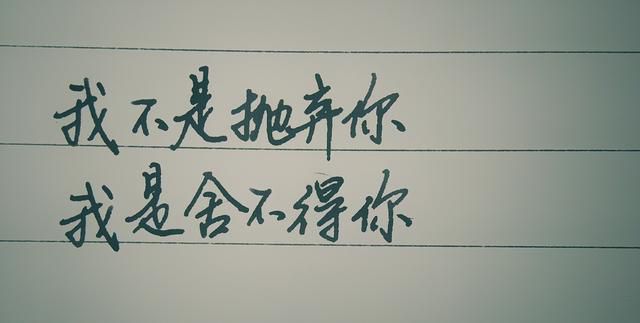 我不是抛弃你
我是舍不得你